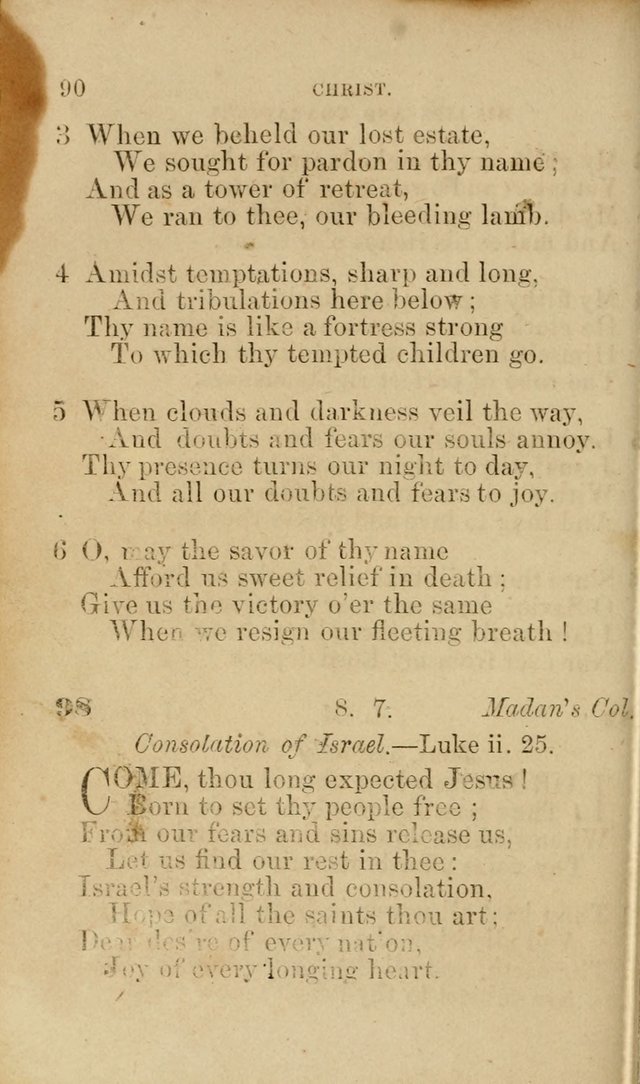 90 CHRIST.
3 When we beheld our lost estate,
We sought for pardon in thy name;
And as a tower of retreat,
We ran to thee, our bleeding lamb.
4 Amidst temptations, sharp and long,
And tribulations here below;
Thy name is like a fortress strong
To which thy tempted children go.
5 When clouds and darkness veil the way,
And doubts and fears our souls annoy.
Thy presence turns our night to day,
And all our doubts and fears to joy.
6 O, may the savor of thy name
Afford us sweet relief in death;
Give us the victory o'er the same
When we resign our fleeting breath!
98 8. 7. Madan's Col.
Consolation of Israel.—Luke ii. 25.
COME, thou long expected Jesus!
Born to set thy people free;
From our fears and sins release us,
Let us find our rest in thee:
Israel's strength and consolation,
Hope of all the saints thou art;
Dear desire of every nation,
Joy of every longing heart.